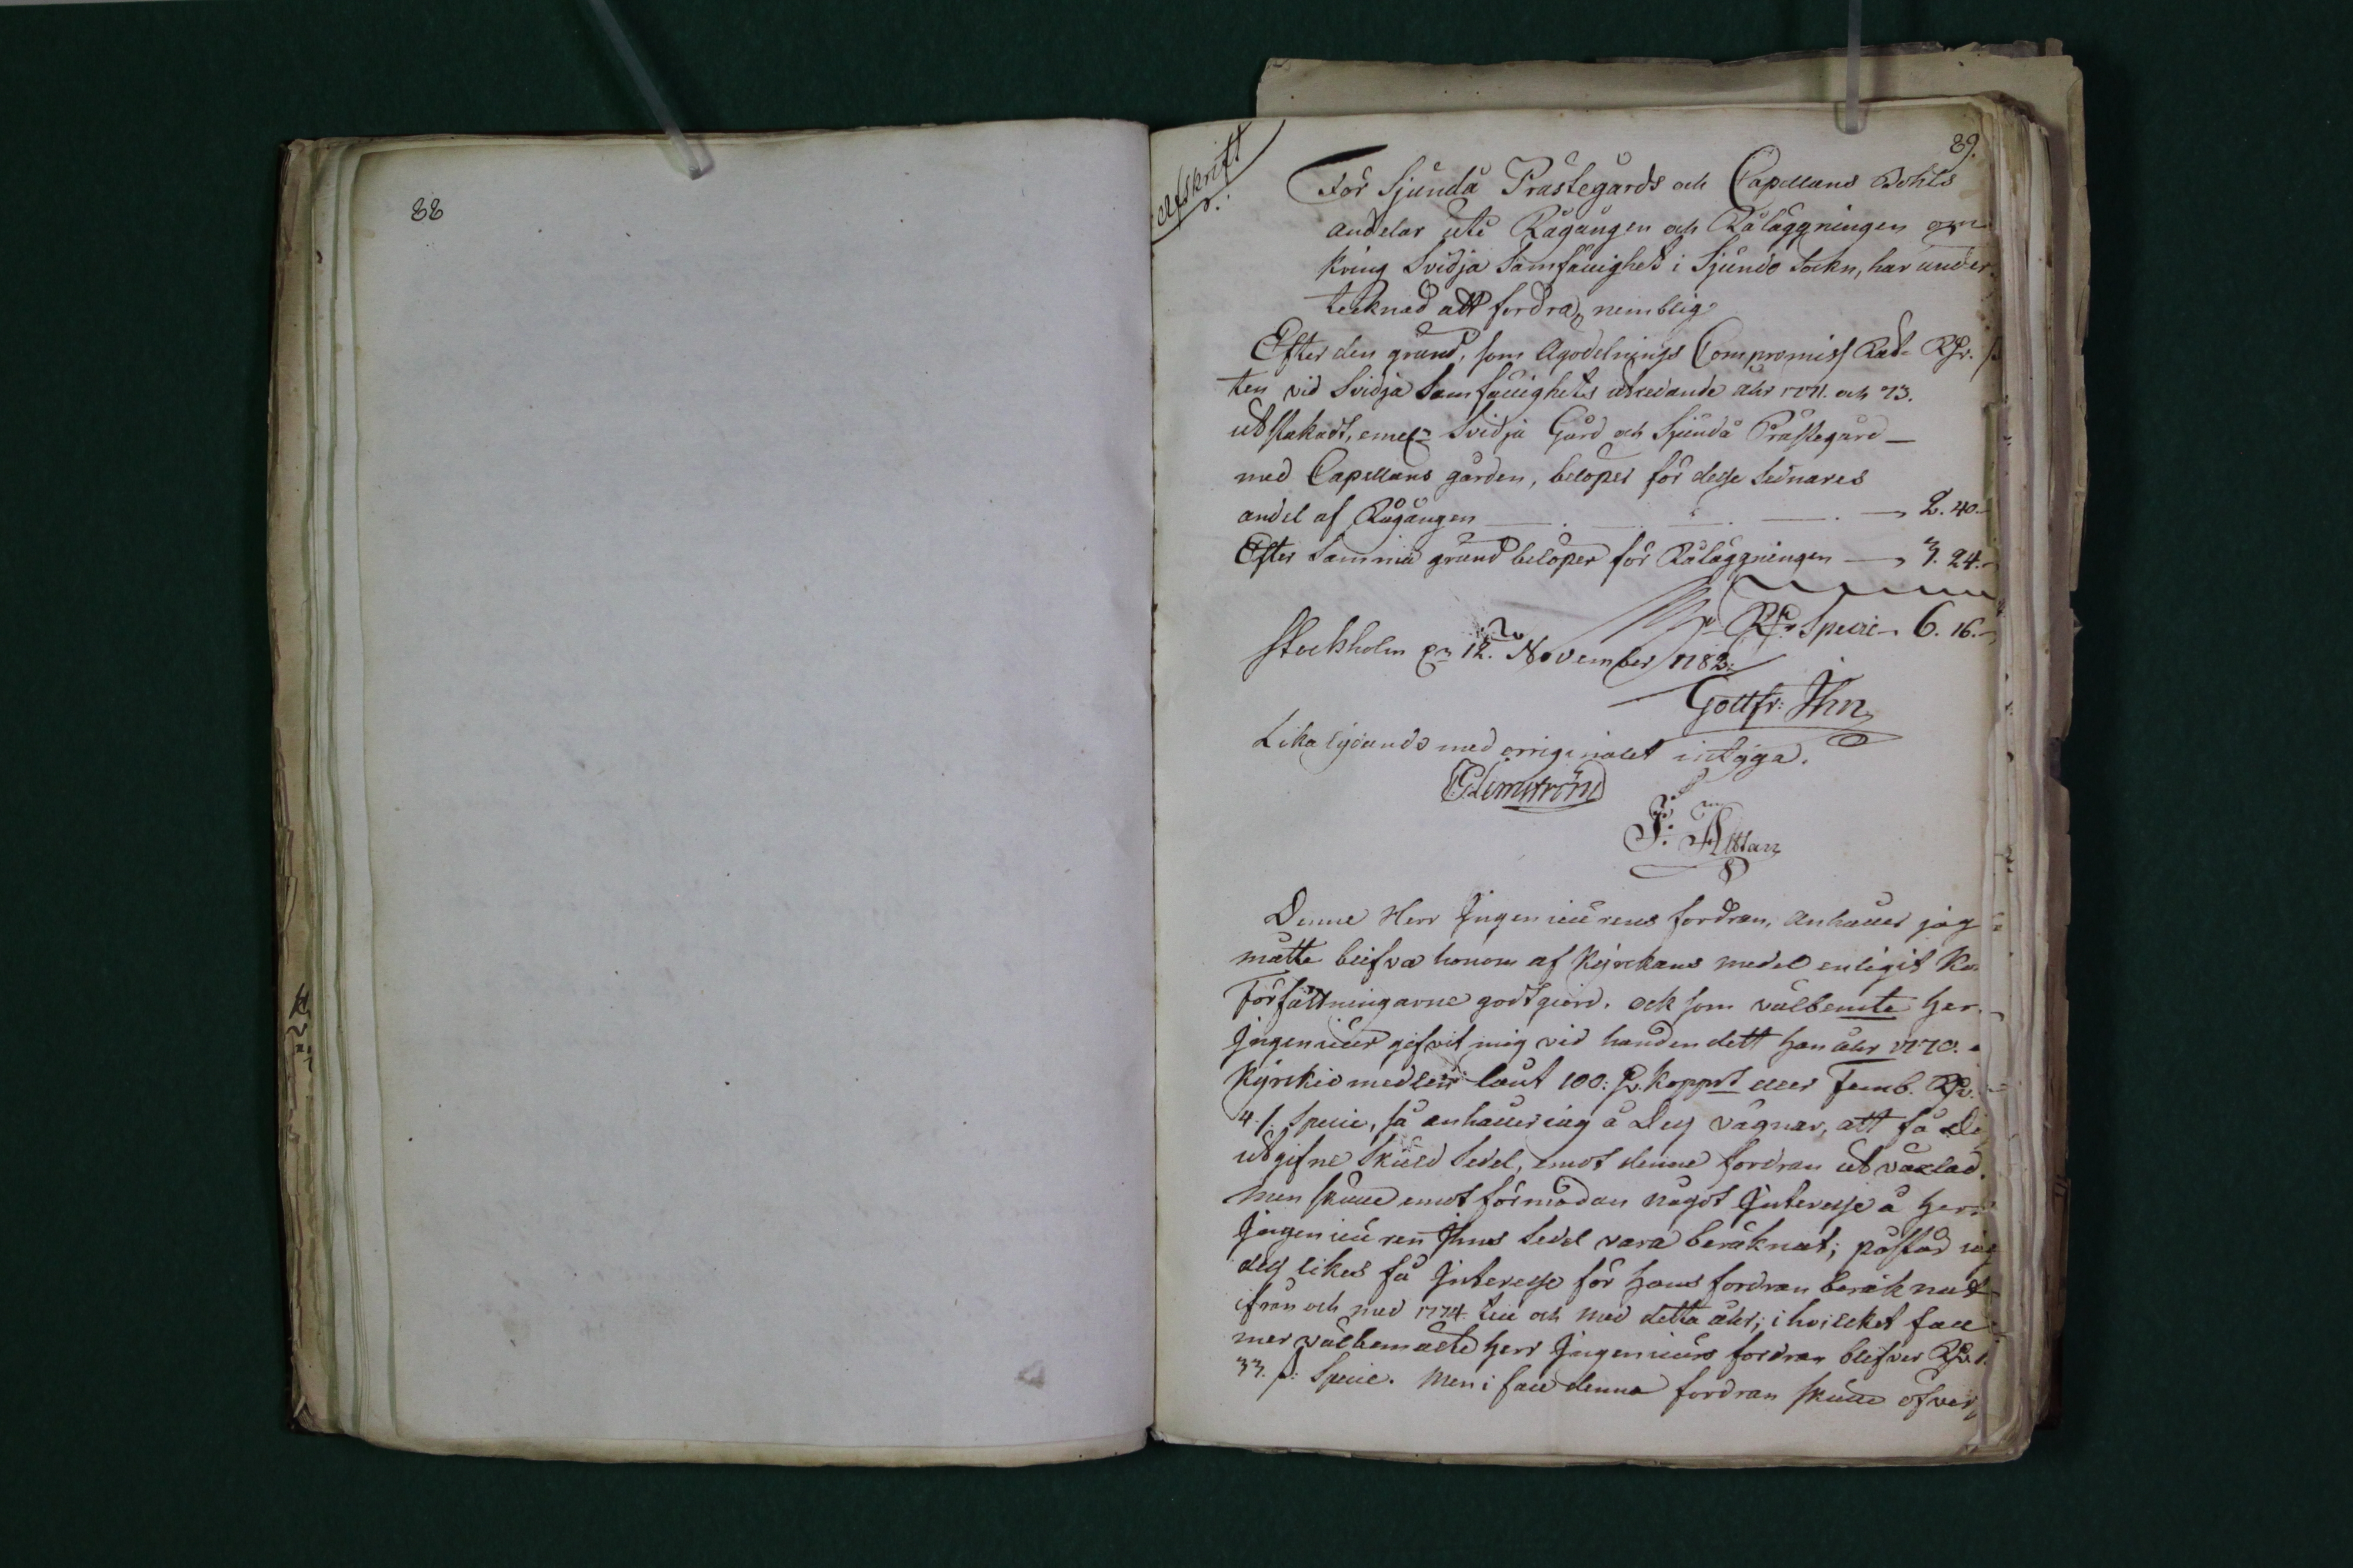 88
89.
Afskrift
För Sjundå Prästegårds och Capellans Bohls
andelar uti Rågången och Råläggningen om
kring Svidja Samfällighet i Sjundo Sockn, har under
tecknad att fordra, nemblig
Efter den grund, som Ägodelnings Compromiss Rät- Rdr. s
ten vid Svidja Samfällighets utredande åhr 1771. och 73.
utstakadt, emel:n Svidja Gård och Sjundå Prästegård
med Capellans gården, belöper för desse sednares
andel af Rågången 2. 40.
Efter samma grund belöper för Råläggningen 3. 24.
Rdr Specie 6. 16.
Stockholm d:n 12. November 1782.
Gottfr: Ihn
Lika lydande med origignalet intyga.
Glimström
F: Altan
Denne Herr Ingenieurens fordran, anhåller jag
måtte blifva honom af Kyrckans medel enligit Kongl.
Författningarne godtgiord. och som välbemte Herr
Ingenieur gifvit mig vid handen dett han åhr 1770. a
Kyrkio medlen lånt 100: D. Koppmt eller Femb. Rdr.
4 s. Specie, så anhåller jag å Dess vägnar, att få De
utgifne Skuld Sedel, emot denne fordran utväxlad.
Men skulle emot förmodan något Interesse å Herr
Ingenieuren Ihns Sedel vara beräknat; påstår jag
dess likes få Interesse för hans fordran beräknat
ifrån och med 1774. till och med detta åhr; i hvilcket fall
mer välbemälte Herr Ingenieurs fordran blifver Rdr.
33. s: Specie. Men i fall denna fordran skulle öfver